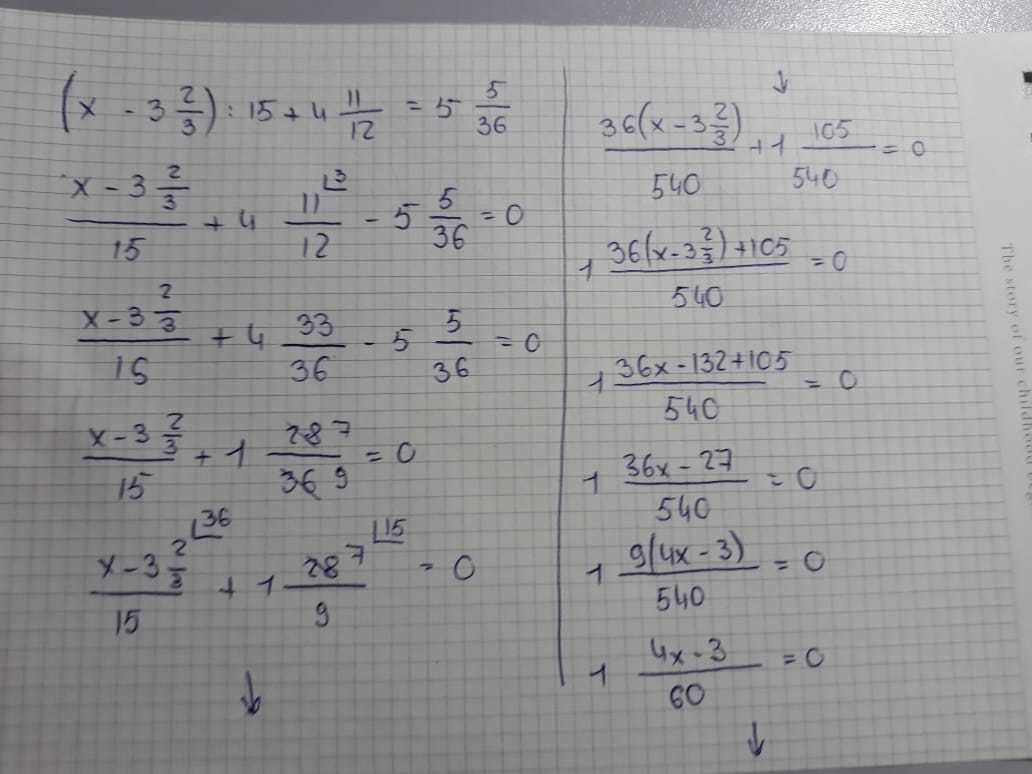 (x - 3 2/3) : 15 + 4 11/12 = 5 5/36
(x - 3 2/3)/15 + 4 11/12 ⌊3 - 5 5/36 = 0
(x - 3 2/3)/15 + 4 33/36 - 5 5/36 = 0
(x - 3 2/3)/15 + 1 28 7/36 9 = 0
(x - 3 2/3)/15 ⌊36 + 1 28 7/9 ⌊15 = 0
↓
↓
36(x - 3 2/3)/540 + 1 105/540 = 0
1 (36(x - 3 2/3) + 105)/540 = 0
1 (36x - 132 + 105)/540 = 0
1 (36x - 27)/540 = 0
1 9(4x - 3)/540 = 0
1 (4x - 3)/60 = 0
↓
The story of our